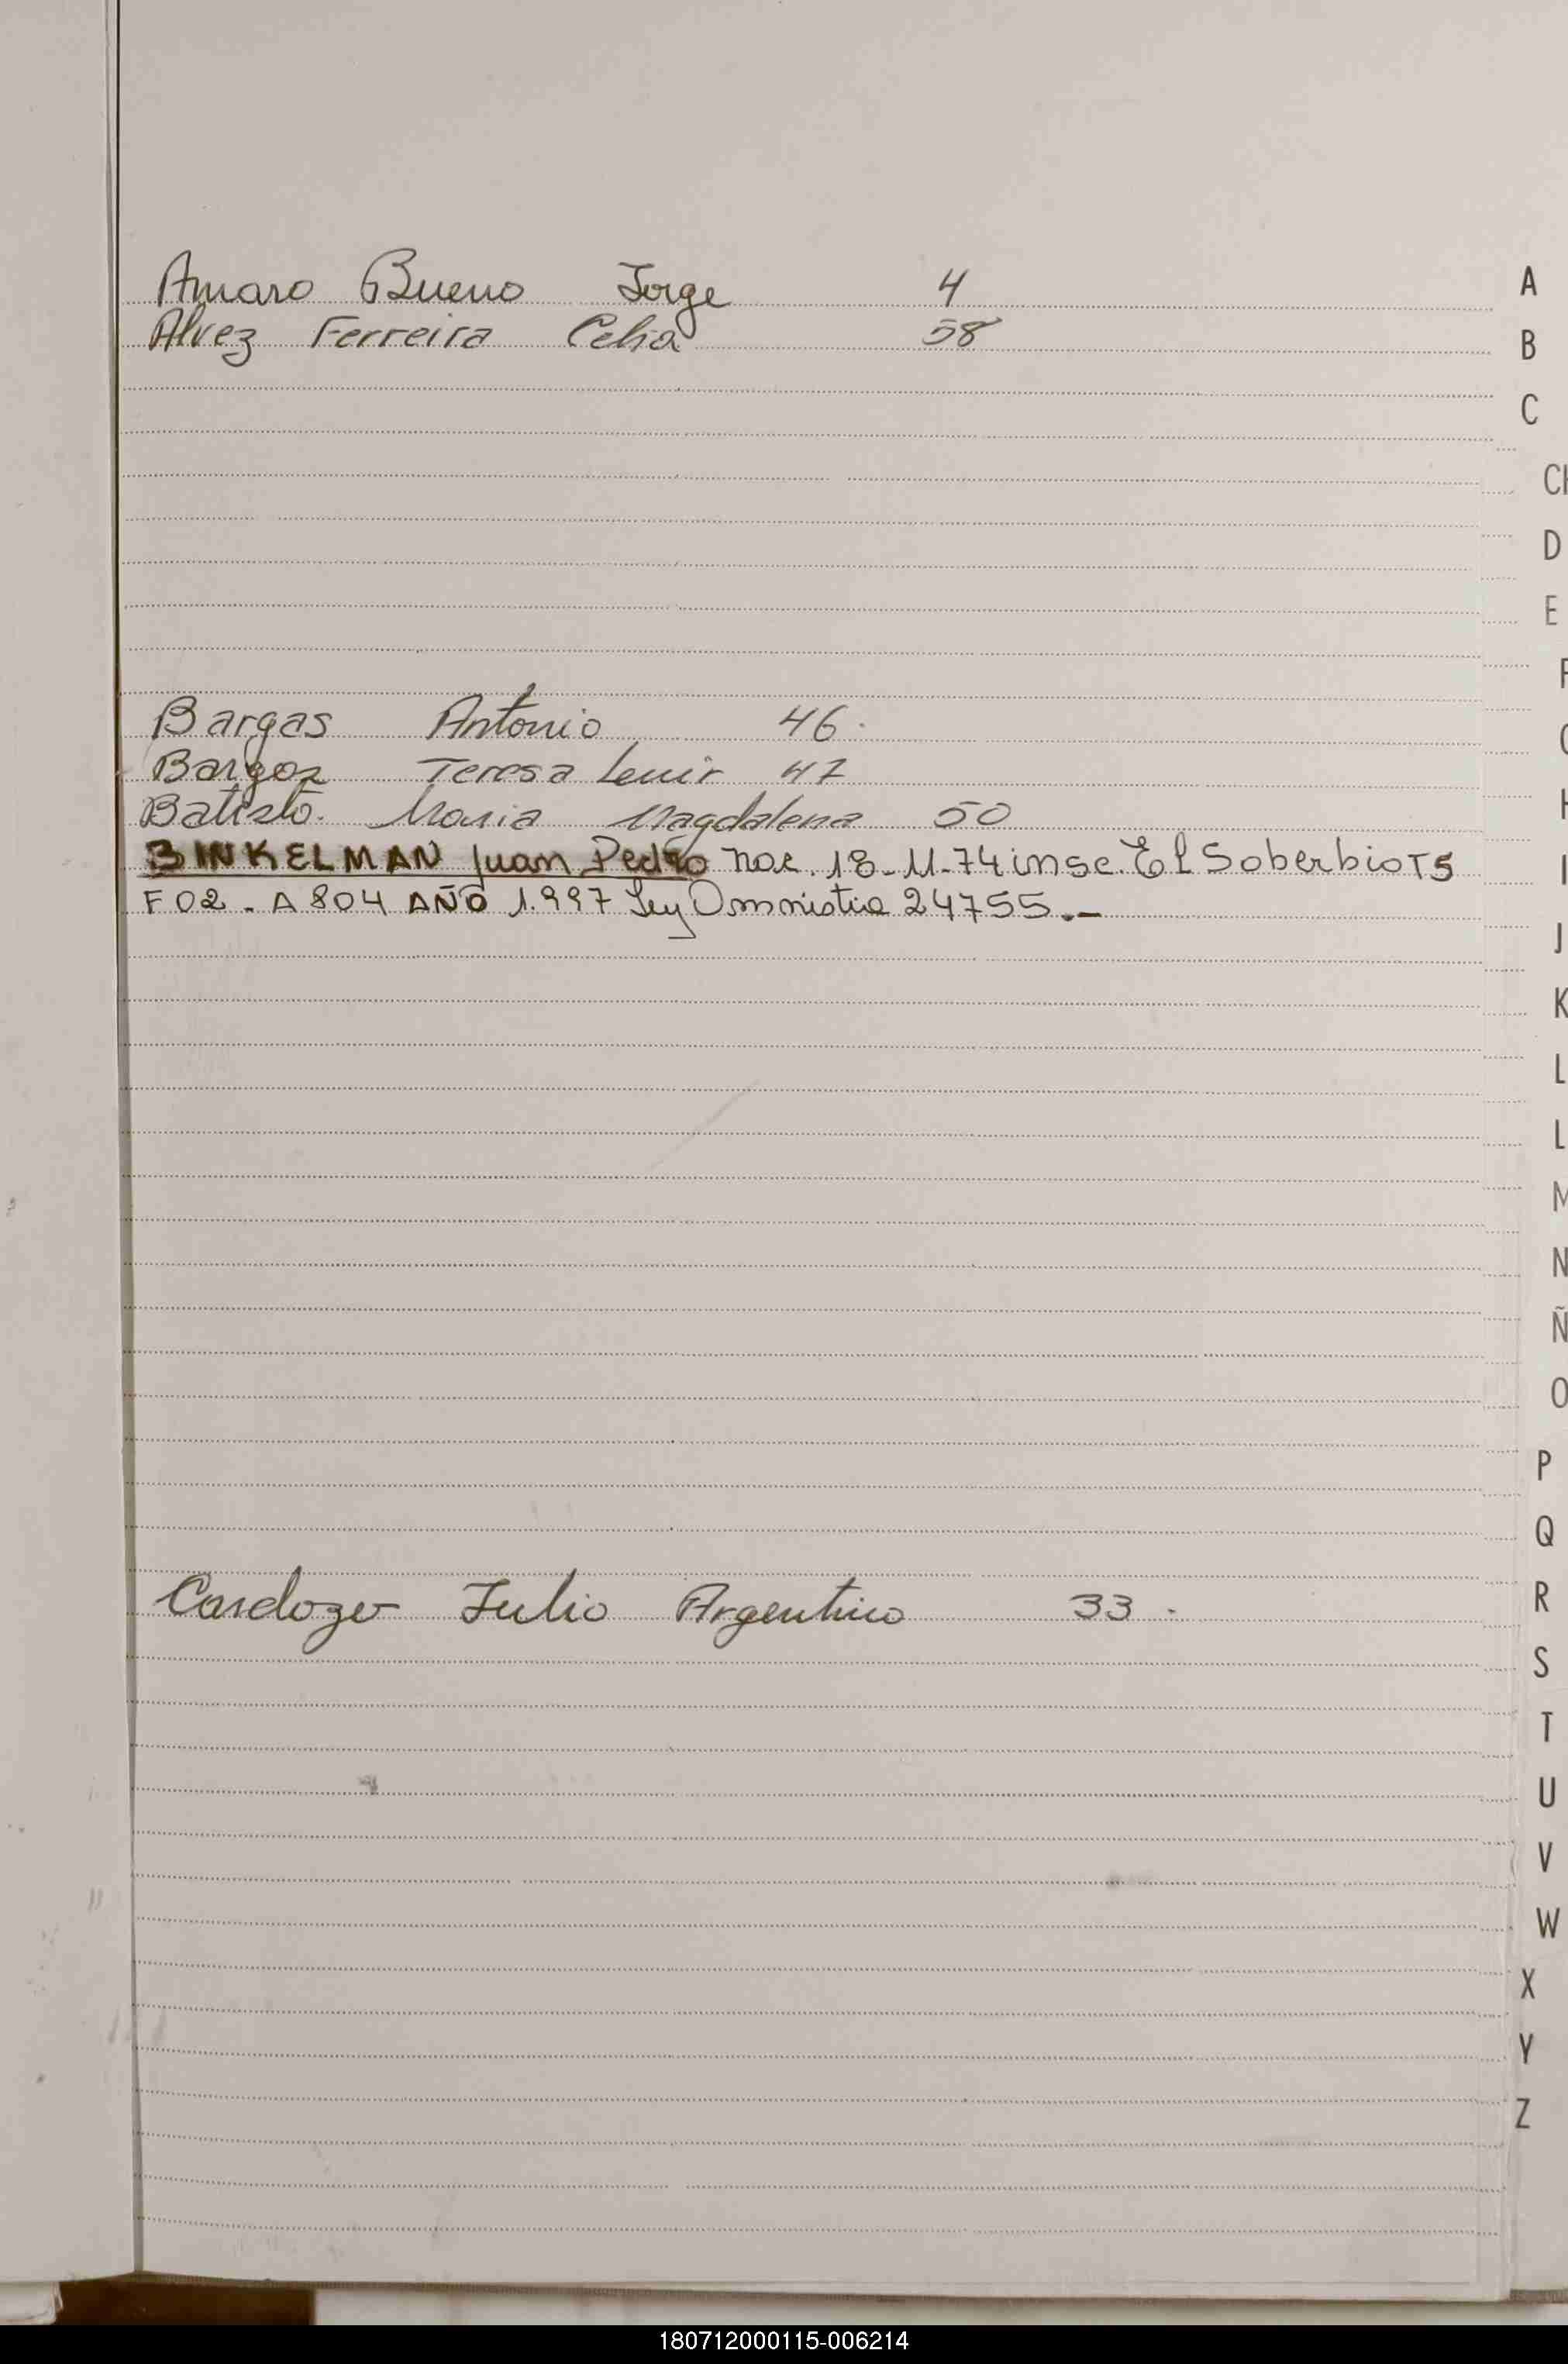 Amaro Bueno Jorge 4
Alvez Ferreira Celia 58
Bargas Antonio 46.
Bargas Teresa Lenir 47
Batista. Maria Magdalena 50
BINKELMAN Juan Pedro nac. 18-11-74 insc. El Soberbio T5
F02. A 804 AÑO 1.997 Ley Amnistia 24755.-
Cardozo Julio Argentino 33.
A
B
C
CH
D
E
F
G
H
I
J
K
L
L
M
N
Ñ
O
P
Q
R
S
T
U
V
W
X
Y
Z
180712000115-006214